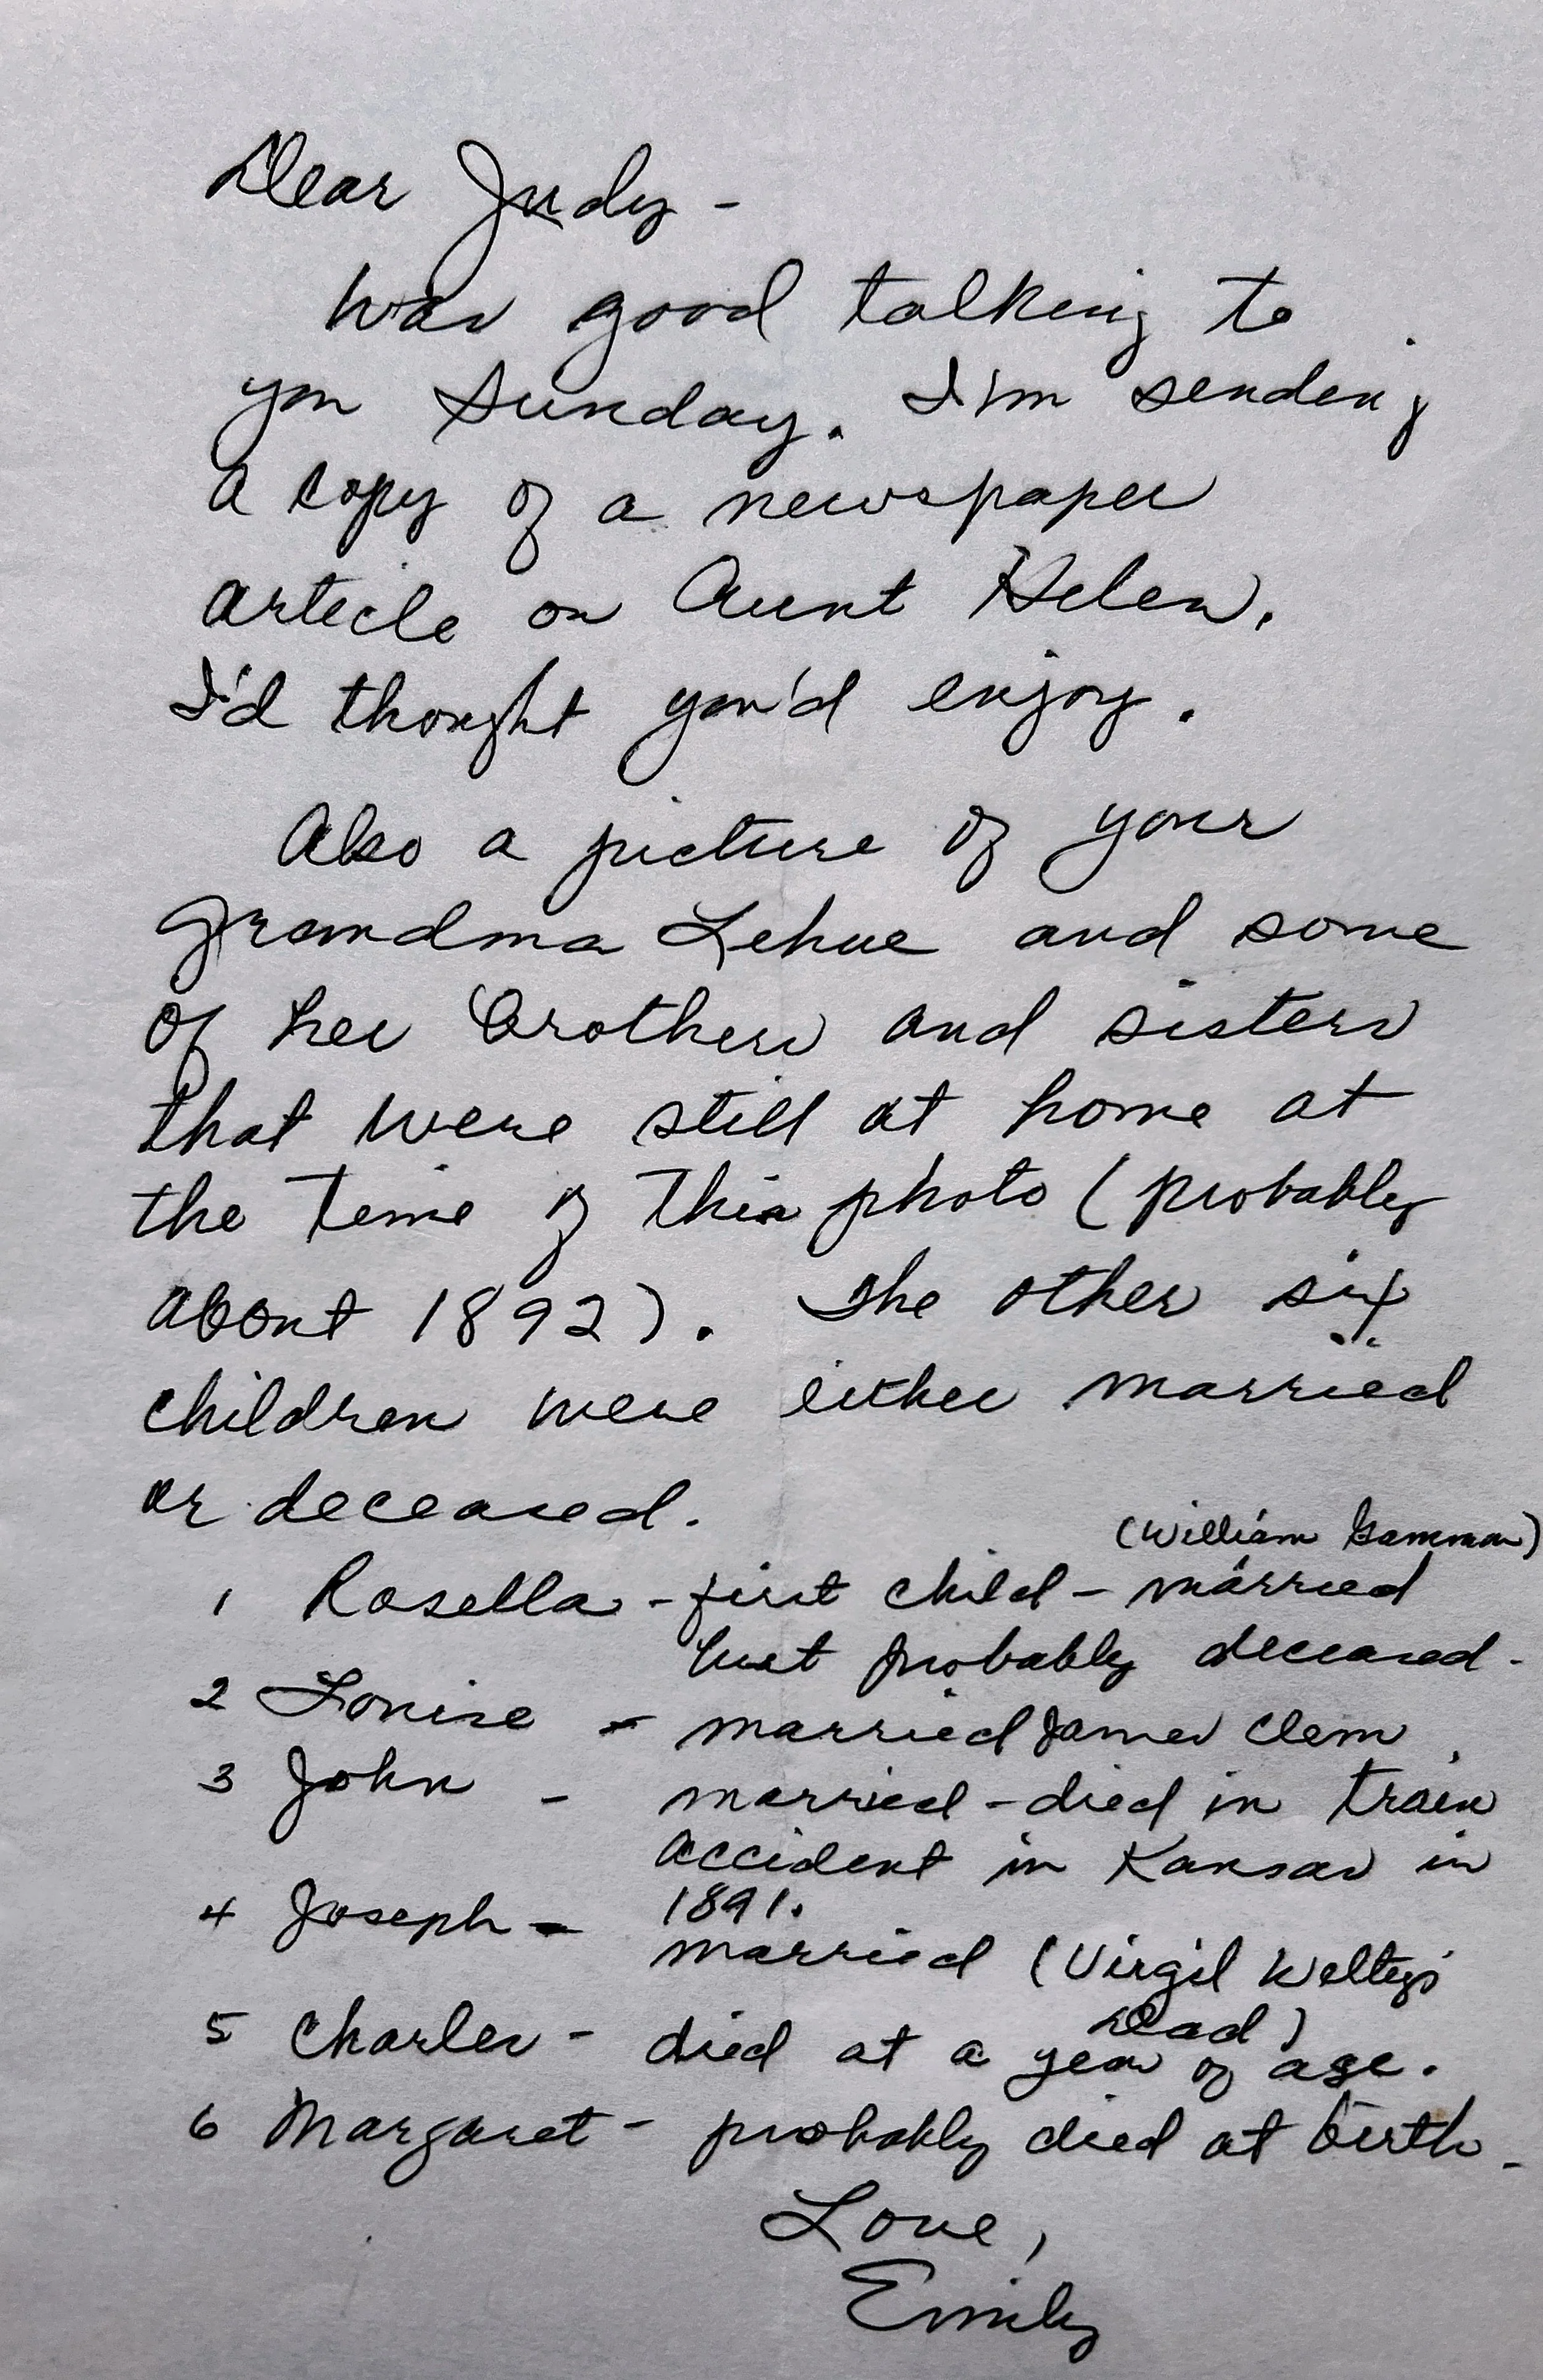 Dear Judy -
Was good talking to
you Sunday. I'm sending
a copy of a newspaper
article on Aunt Helen.
I'd thought you'd enjoy.
Also a picture of your
Grandma Lehue and some
of her brothers and sisters
that were still at home at
the time of this photo (probably
about 1892). The other six
children were either married
or deceased.
(William Gammon)
1 Rosella - first child - married
but probably deceased -
2 Louise - married James Clem
3 John - married - died in train
accident in Kansas in
1891.
4 Joseph - married (Virgil Welty's
Dad)
5 Charles - died at a year of age.
6 Margaret - probably died at birth -
Love,
Emily